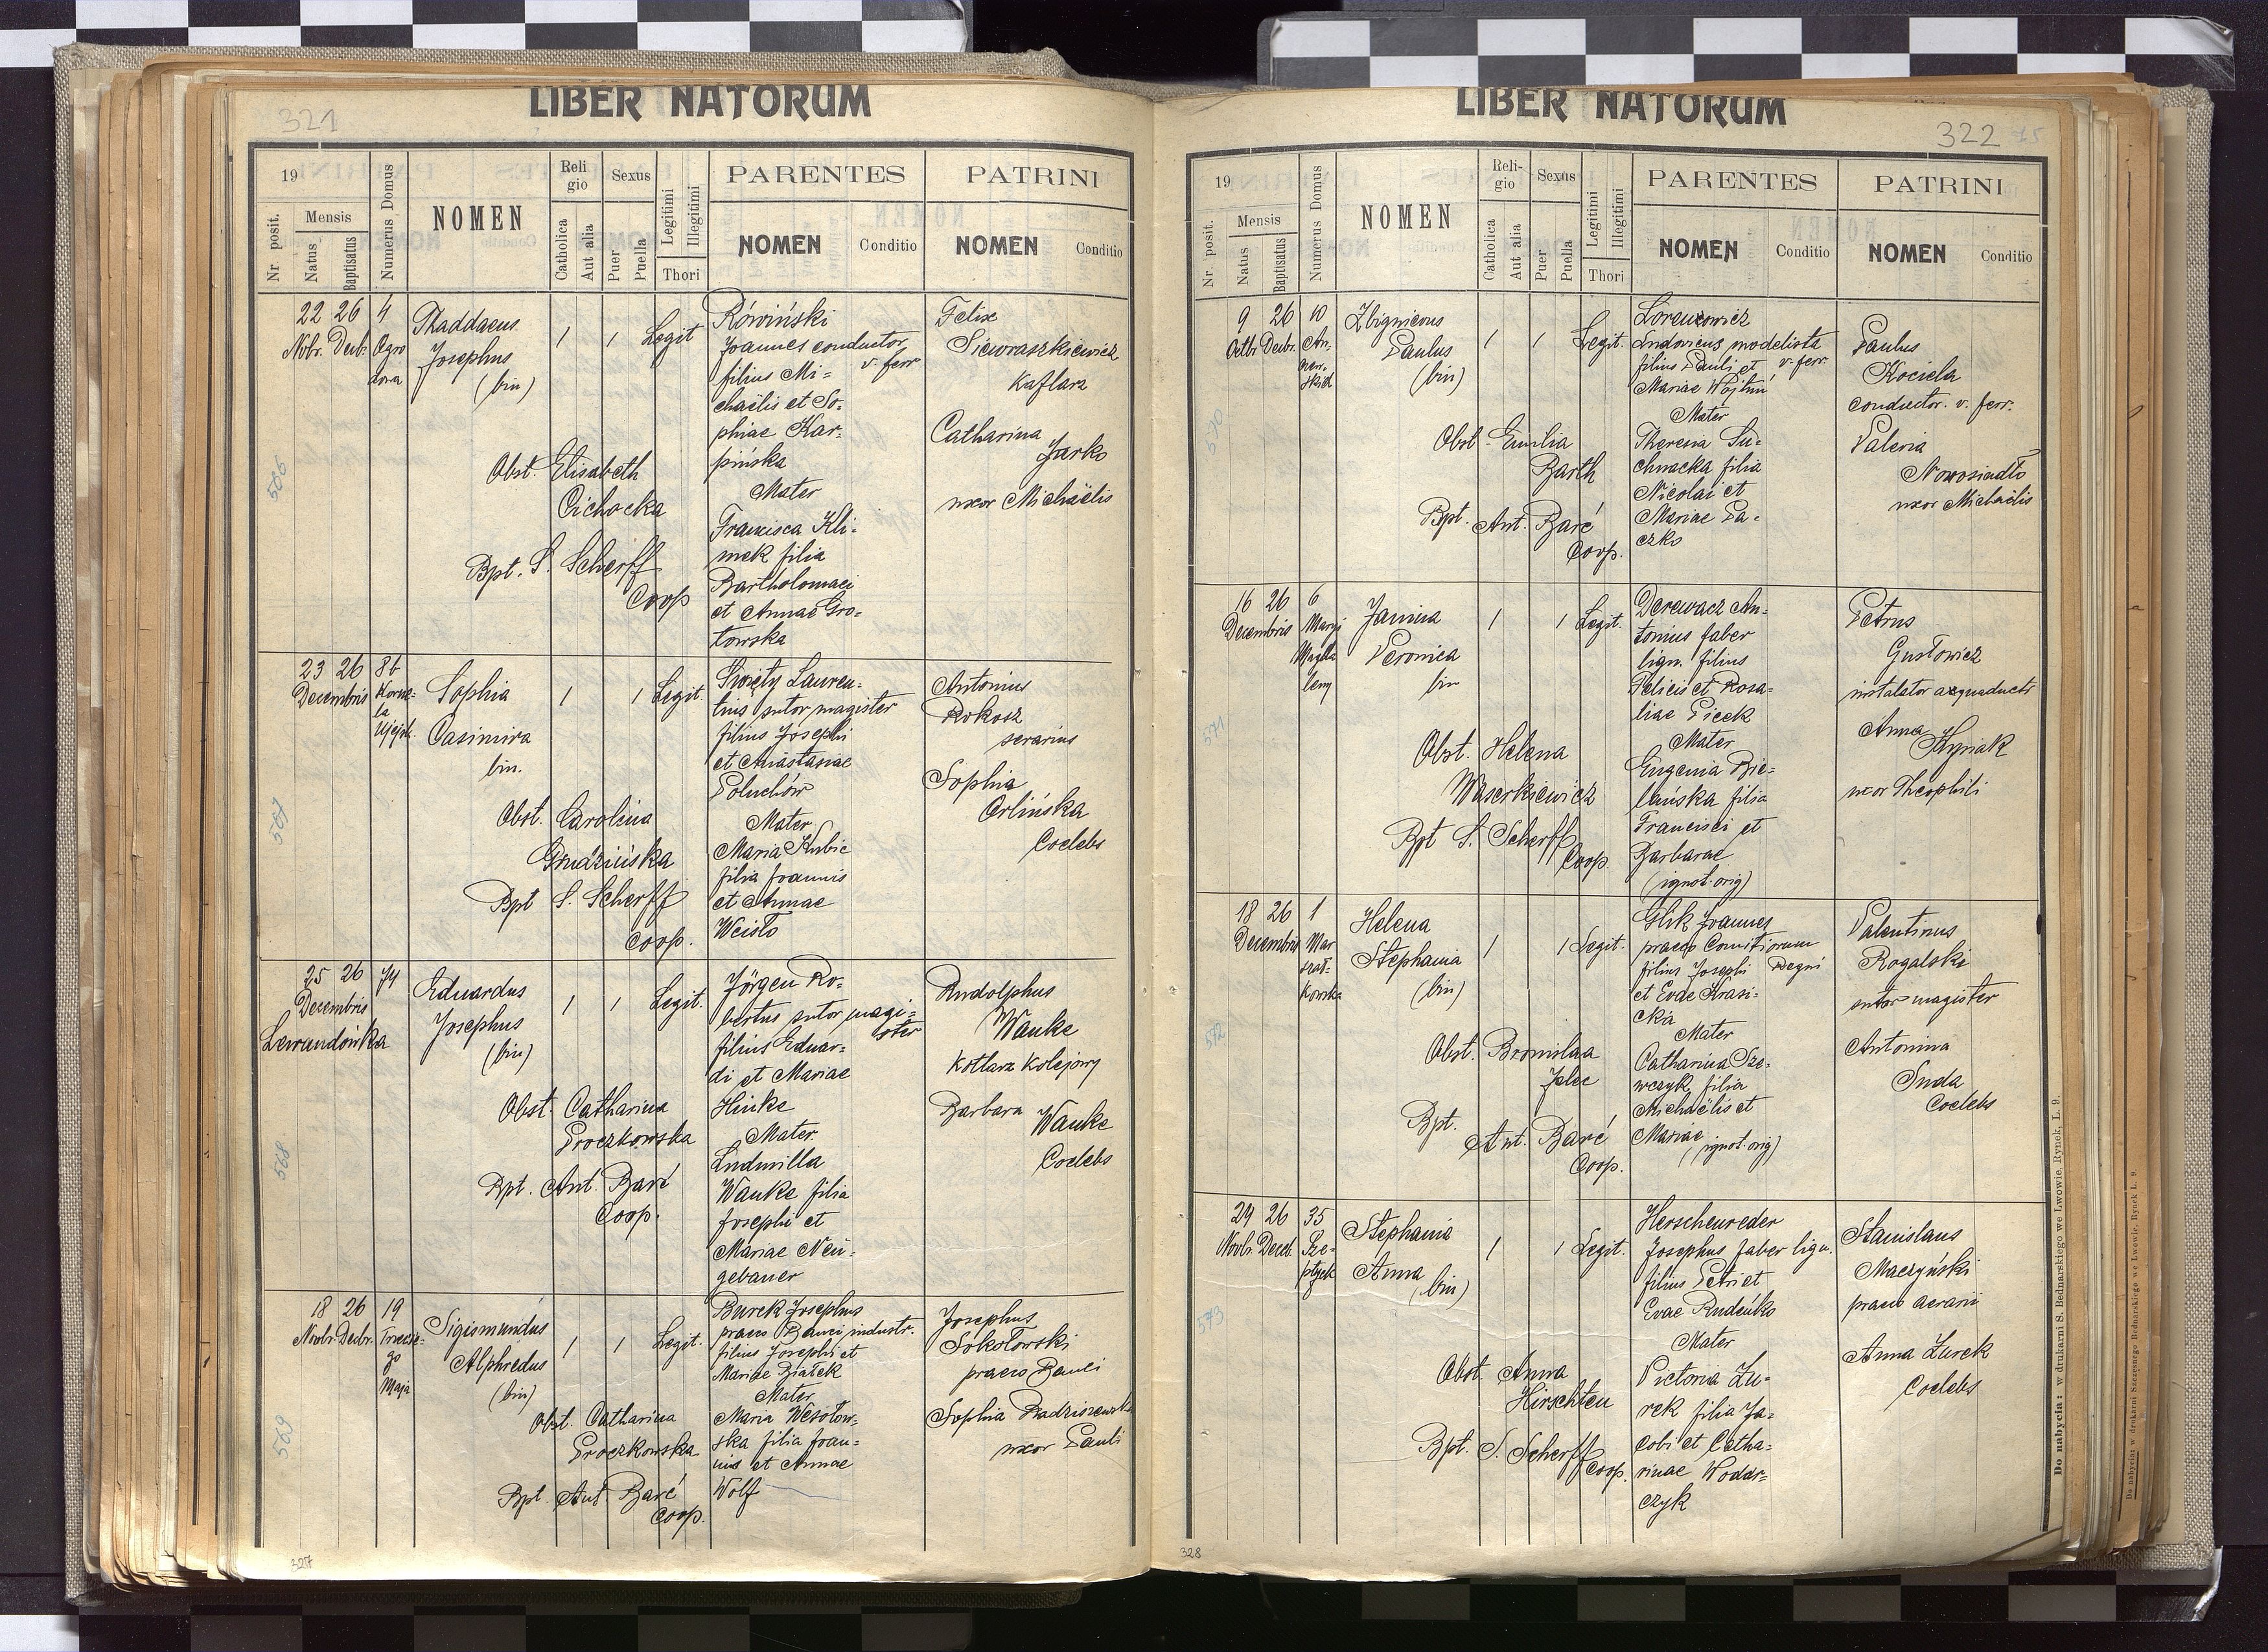 LIBER NATORUM
321
19
Nr. posit.
Mensis
Natus
Baptisatus
Numerus Domus
NOMEN
Religio
Catholica
Aut alia
Sexus
Puer
Puella
Legitimi
Illegitimi
Thori
PARENTES
NOMEN
Conditio
PATRINI
NOMEN
Conditio
566
22 26 4
Nobr. Decbr.
Thaddaeus
Josephus
(bin)
1 1 Legit
Obst. Elisabeth
Cichocka
Bpt. S. Scherff
Coop
Rówiński
Joannes conductor
v. ferr
filius Mi=
chaëlis et So=
phiae Kar=
pińska
Mater
Francisca Kli=
mek filia
Bartholomaei
et Annae Gro=
towska
Felix
Siewraszkiewicz
Kaflarz
Catharina
Jarko
uxor Michaëlis
567
23 26 86
Decembris
Sophia
Casimira
bin.
1 1 Legit.
Obst. Carolina
Grudzińska
Bpt S. Scherff
Coop.
Święty Lauren=
tius sutor magister
filius Josephi
et Anastasiae
Poluchów
Mater
Maria Kubic
filia Joannis
et Annae
Weisło
Antonius
Rokosz
serarius
Sophia
Orlińska
Coelebs
568
25 26 74
Decembris
Lewandówka
Eduardus
Josephus
(bin)
1 1 Legit.
Obst. Catharina
Proczkowska
Bpt. Ant. Baré
Coop.
Jörgen Ro=
bertus sutor magi=
ster
filius Eduar=
di et Mariae
Hinke
Mater
Ludmilla
Wanke filia
Josephi et
Mariae Neu=
gebauer
Rudolphus
Wanke
Kotlarz Kolejowy
Barbara Wanke
Coelebs
569
18 26 19
Novbr. Decbr.
Trzecie=
go
Maja
Sigismundus
Alphredus
(bin)
1 1 Legit.
Obst. Catharina
Proczkowska
Bpt. Ant. Baré
Coop.
Burek Josephus
praeco Banci industr.
filius Josephi et
Mariae Białek
Mater
Maria Wesołow=
ska filia Joan=
nis et Annae
Wolf
Josephus
Sokołowski
praeco Banci
Sophia Radziszewska
uxor Pauli
327
LIBER NATORUM
322
19
Nr. posit.
Mensis
Natus
Baptisatus
Numerus Domus
NOMEN
Religio
Catholica
Aut alia
Sexus
Puer
Puella
Legitimi
Illegitimi
Thori
PARENTES
NOMEN
Conditio
PATRINI
NOMEN
Conditio
570
9 26 10
Octbr. Decbr.
Zbignieous
Paulus
(bin)
1 1 Legit.
Obst. Emilia
Barth
Bpt. Ant. Baré
Coop.
Lorenzowicz
Ludovicus modelista
v. ferr.
filius Pauli et
Mariae
Mater
Theresia Su=
chnacka filia
Nicolai et
Mariae Pa=
czko
Paulus
Kociela
conductor. v. ferr.
Valeria
Nowosiadło
uxor Michaëlis
571
16 26 6
Decembris
Maryi
Magda
leny
Janina
Veronica
bin
1 1 Legit.
Obst. Helena
Waserkiewicz
Bpt S. Scherff
Coop
Derewacz An=
tonius faber
lign. filius
Felicis et Rosa=
liae Picek
Mater
Eugenia Bie=
lańska filia
Francisci et
Barbarae
(ignot. orig)
Petrus
Gustowicz
instalator
Anna
Hyniak
uxor Theophili
572
18 26 1
Decembris
Mar
szał=
kowska
Helena
Stephania
(bin)
1 1 Legit.
Obst. Bronislaa
Jalec
Bpt.
Ant. Baré
Coop.
Glik Joannes
praeco Comitiorum
Regni
filius Josephi
et Evae Krasi=
cka
Mater
Catharina Sze=
wczyk filia
Michaëlis et
Mariae (ignot. orig)
Valentinus
Rogalski
sutor magister
Antonina
Suda
Coelebs
573
29 26 35
Novbr. Decbr.
Sze=
ptyck
Stephania
Anna
(bin)
1 1 Legit.
Obst. Anna
Hirschten
Bpt. S. Scherff
Coop.
Herschenreder
Josephus faber lign.
filius Petri et
Evae Rudeńko
Mater
Victoria Żu=
rek filia Ja=
cobi et Catha=
rinae Wodar=
czyk
Stanislaus
Maczyński
praeco aerarii
Anna Żurek
Coelebs
328
Do nabycia: w drukarni S. Bednarskiego we Lwowie, Rynek, L. 9.
Do nabycia: w drukarni Szczęsnego Bednarskiego we Lwowie, Rynek L. 9.